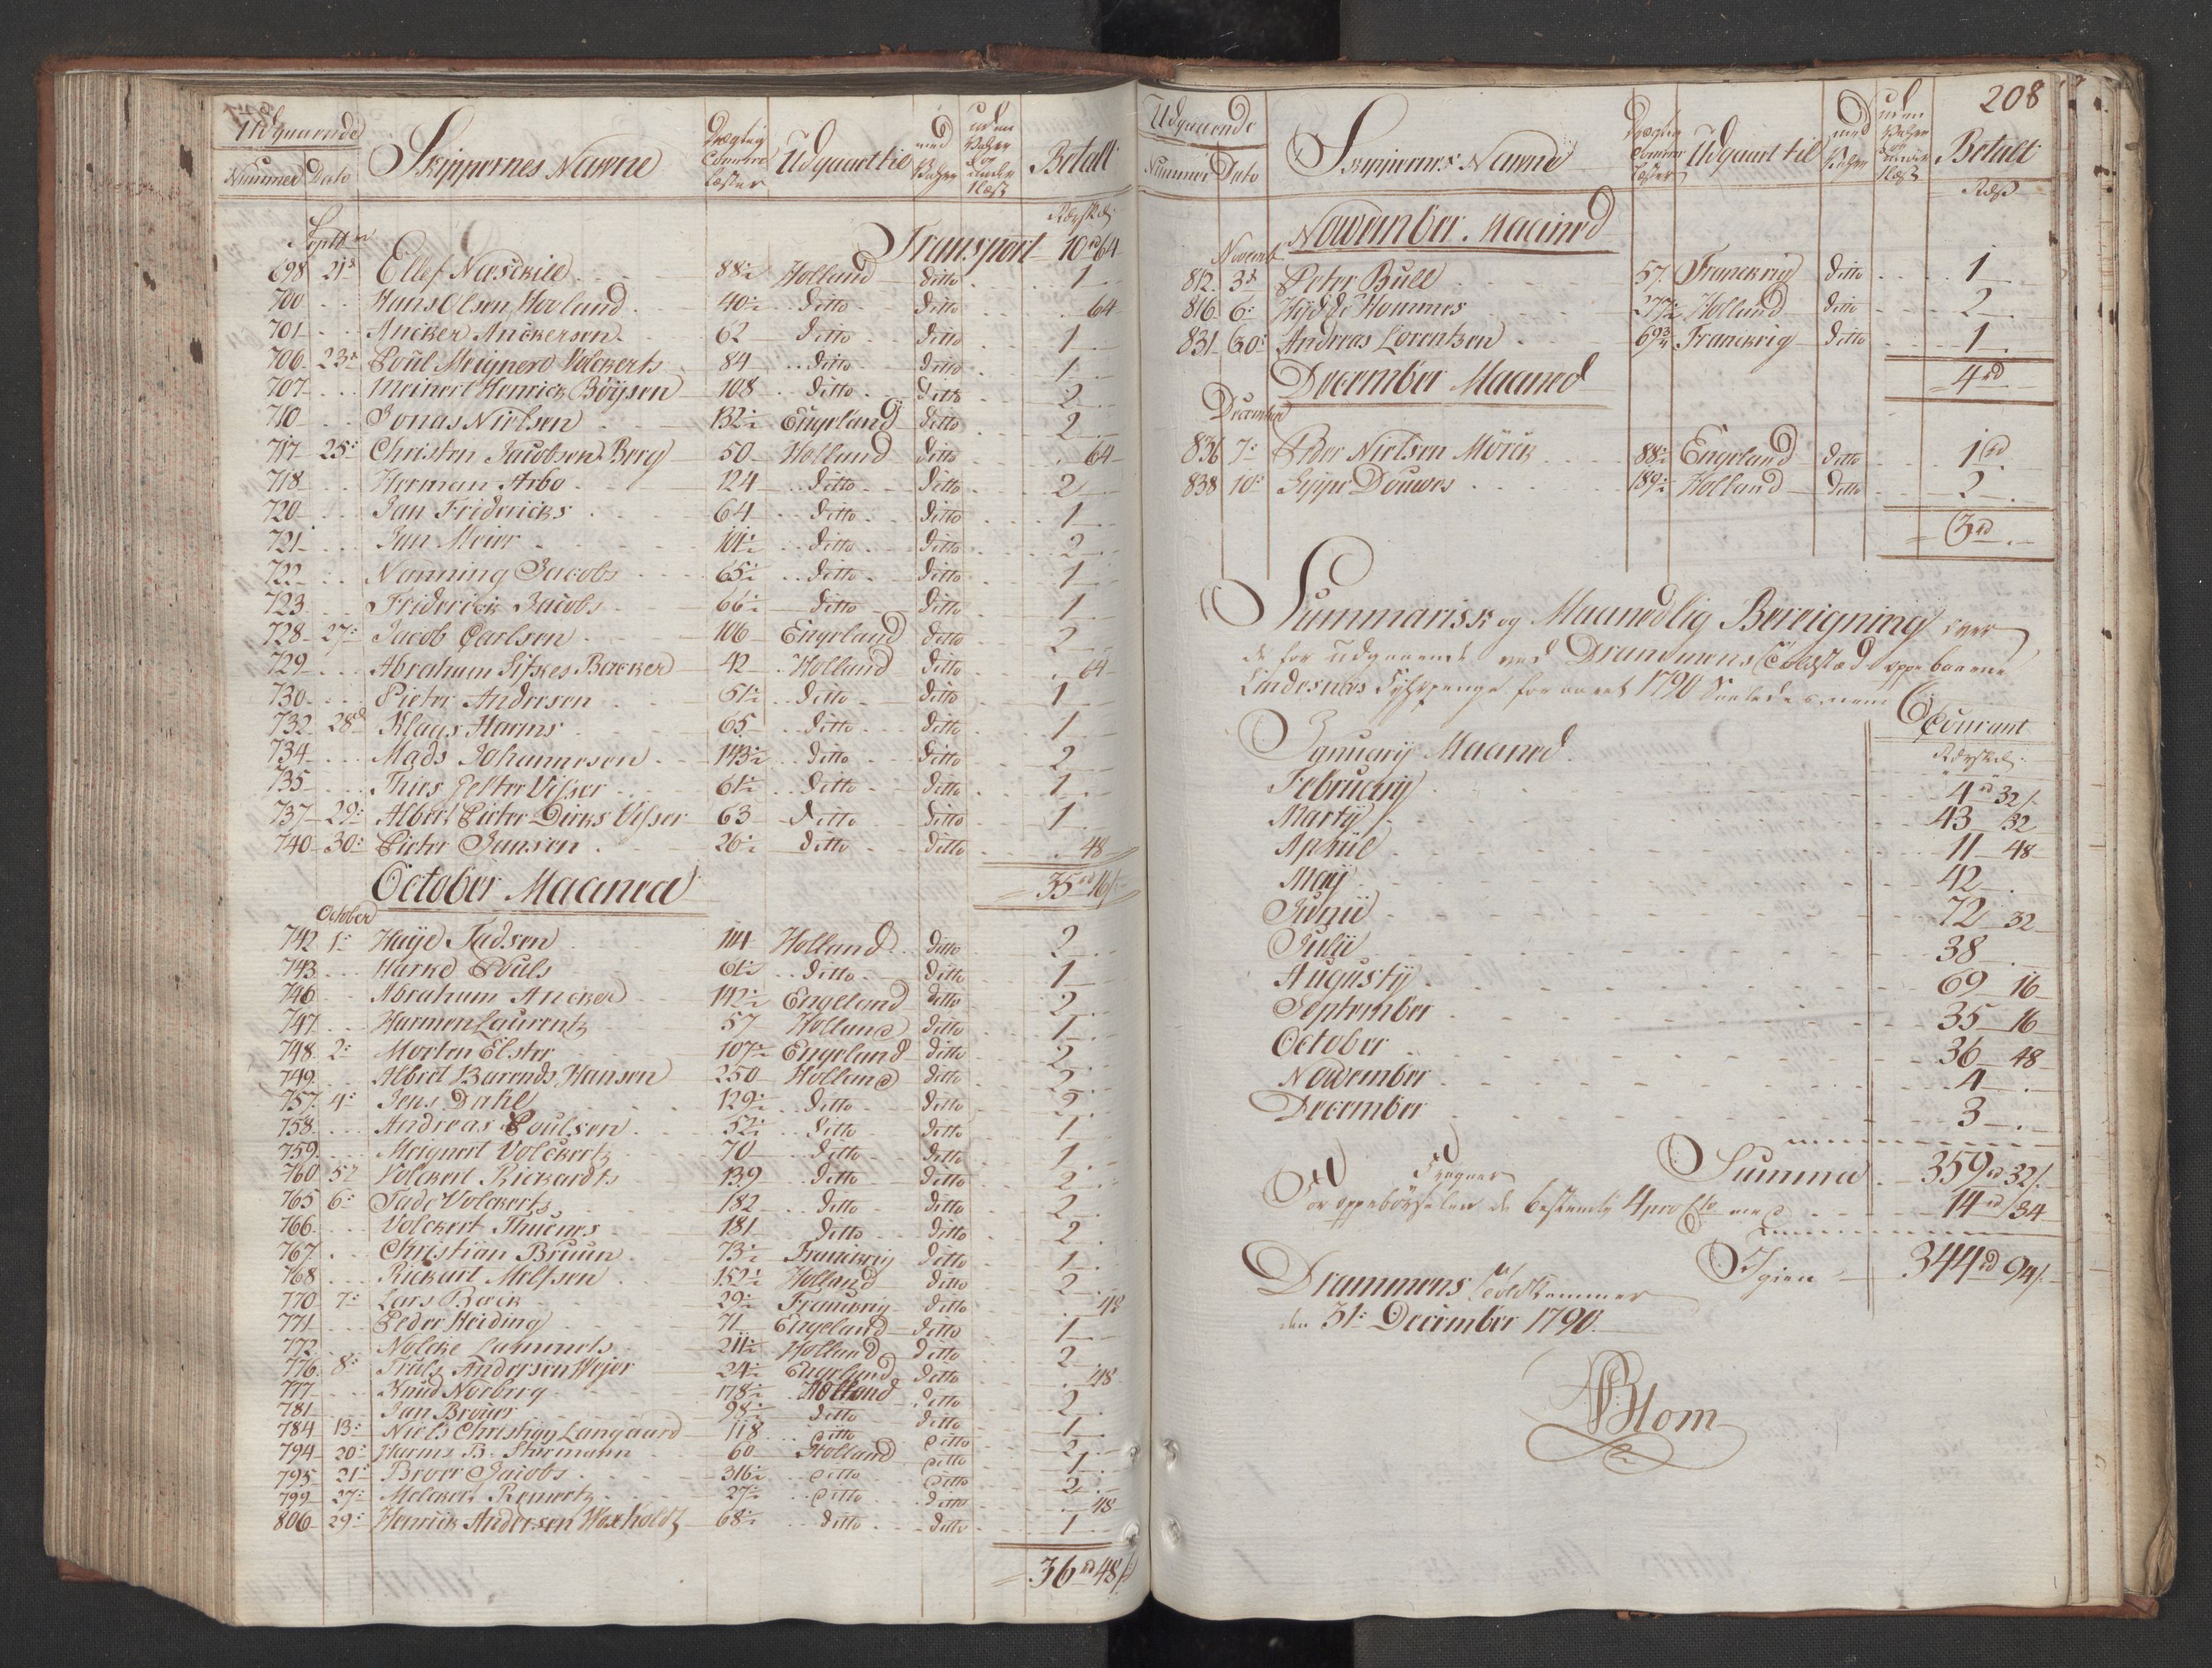 Udgaaende
Nummer Dato Skippernes Nawne Drægtig Commerce Læster Udgaaet til med uden Betalt
Rdr Sk
Septbr Transport 10 rd 64
698 21 Ellef Næsckild 88½ Holland ditto 1
700 Hans Olsen Hovland 40½ ditto ditto 64
701 Ancker Anckersen 62 ditto ditto 1
706 23 Poul Meignert Volckerts 84 ditto ditto 1
707 Meinert Henrick Böysen 108 ditto ditto 2
710 Jonas Nielsen 132½ Engeland ditto 2
717 25 Christen Jacobsen Berg 50 Holland ditto 64
718 Herman Arbo 124 ditto ditto 2
720 Jan Fridericks 64 ditto ditto 1
721 Jan Meier 101½ ditto ditto 2
722 Nanning Jacobs 65½ ditto ditto 1
723 Friderick Jacobs 66½ ditto ditto 1
728 27 Jacob Carlsen 106 Engeland ditto 2
729 Abraham Sipkes Backer 42 Holland ditto 64
730 Pieter Andresen 51½ ditto ditto 1
732 28 Klaas Harms 65 ditto ditto 1
734 Mads Johannesen 143½ ditto ditto 2
735 Thies Jelter Visser 61½ ditto ditto 1
737 29 Albert Pieter Dirks Visser 63 ditto ditto 1
740 30 Pieter Jansen 26½ ditto ditto 48
October Maaned 35 rd 16
October
742 1 Haye Tadsen 141 Holland ditto 2
743 Harke Pouls 61½ ditto ditto 1
746 Abraham Ancker 142½ Engeland ditto 2
747 Harmen Laurentz 57 Holland ditto 1
748 2 Morten Elster 107½ Engeland ditto 2
749 Albert Barends Hansen 250 Holland ditto 2
757 4 Jens Dahl 129½ ditto ditto 2
758 Andreas Poulsen 52½ ditto ditto 1
759 Meignert Volckertz 70 ditto ditto 1
760 5 Volckert Rickardts 139 ditto ditto 2
765 6 Tade Volckerts 182 ditto ditto 2
766 Volckert Thuenes 181 ditto ditto 2
767 Christian Bruun 73½ Franckrig ditto 1
768 Rickart Melfsen 152½ Holland ditto 2
770 7 Lars Beick 29½ Franckrig ditto 48
771 Peder Heiding 71 Engeland ditto 1
772 Nolcke Lammerts 211½ Holland ditto 2
776 8 Truls Andersen Weyer 24½ Engeland ditto 48
777 Knud Norberg 178½ Holland ditto 2
781 Jan Brouer 98½ ditto ditto 1
784 13 Niels Christian Langaard 118 ditto ditto 2
794 20 Harms B. Sturmann 60 Holland ditto 1
795 21 Broer Jacobs 316½ ditto ditto 2
799 27 Melckert Remertz 27½ ditto ditto 48
806 29 Henrick Andersen Waxholdt 68½ ditto ditto 1
36 rd 48
208
Udgaaende
Nummer Dato Skippernes Nawne Drægtig Commerce Læster Udgaaet til med uden Betalt
November Maaned
Novemb
812 3 Peter Bull 57 Franckrig ditto 1
816 6 Hydde Hommes 277½ Holland ditto 2
831 30 Andreas Lorentzen 69½ Franckrig ditto 1
December Maaned 4 rd
December
836 7 Peder Nielsen Mörck 88½ Engeland ditto 1 rd
838 10 Sippe Douwes 189½ Holland ditto 2
3 rd
Summarisk og Maanedlig Bereigning over
de for udgaaende ved Drammens Toldsted oppebaarne
Lindesnæs Fyhrpenge for aaret 1790 Saaledes nem
Courant
January Maaned Rdr Sk
February 4 rd 32
Marty 43 32
April 11 48
May 42
Juny 72 32
July 38
Augusty 69 16
September 35 16
October 36 48
November 4
December 3
Summa 359 rd 32
Fragaaer
For oppebörselen de bestemte 4 pro Cto med 14 rd 34
Igien 344 rd 94
Drammens Toldkammer
den 31 December 1790
Blom